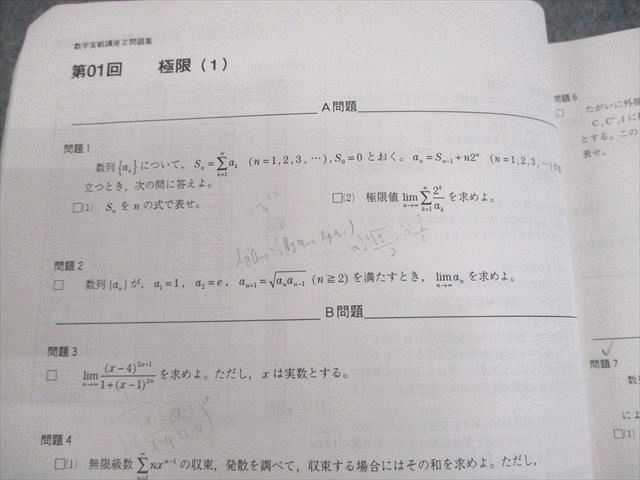 数学実戦講座Ⅱ問題集
第01回 極限（1）
A問題
問題1
数列{aₙ}について，Sₙ=∑ₖ₌₁ⁿ aₖ (n=1,2,3,…),S₀=0 とおく。aₙ=Sₙ₋₁+n2ⁿ (n=1,2,3,…)が
立つとき，次の問に答えよ。
□(1) Sₙ を n の式で表せ。 □(2) 極限値 lim_{n→∞} ∑ₖ₌₁ⁿ 2ᵏ/aₖ を求めよ。
問題2
□ 数列{aₙ}が，a₁=1，a₂=e，aₙ₊₁=√(aₙaₙ₋₁) (n≧2) を満たすとき，lim_{n→∞} aₙ を求めよ。
B問題
問題3
□ lim_{n→∞} (x−4)²ⁿ⁺¹/(1+(x−1)²ⁿ) を求めよ。ただし，x は実数とする。
問題4
□(1) 無限級数 ∑ₙ₌₁^∞ nxⁿ⁻¹ の収束，発散を調べて，収束する場合にはその和を求めよ。ただし，
問題6
□ たがいに外接
C, C′, l に接
とする。この
表せ。
問題7
数
によ
□(1)